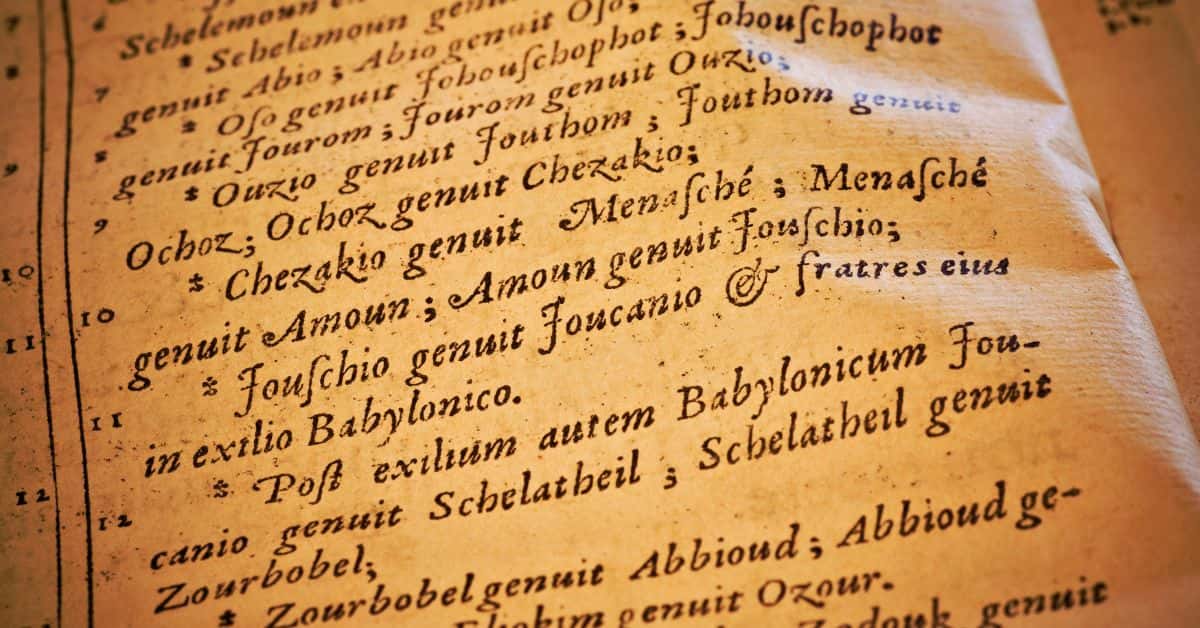 Schelemoun
7 * Schelemoun
genuit Abio ; Abio genuit Oſo;
8 * Oſo genuit Johouſchophot ; Johouſchophot
genuit Jourom ; Jourom genuit Ouzio;
9 * Ouzio genuit Jouthom ; Jouthom genuit
Ochoz; Ochoz genuit Chezakio;
10 10 * Chezakio genuit Menaſché ; Menaſché
genuit Amoun ; Amoun genuit Jouſchio;
11 11 * Jouſchio genuit Joucanio & fratres eius
in exilio Babylonico.
12 12 * Poſt exilium autem Babylonicum Jou-
canio genuit Schelatheil ; Schelatheil genuit
Zourbobel;
* Zourbobel genuit Abbioud ; Abbioud ge-
genuit Ozour.
genuit